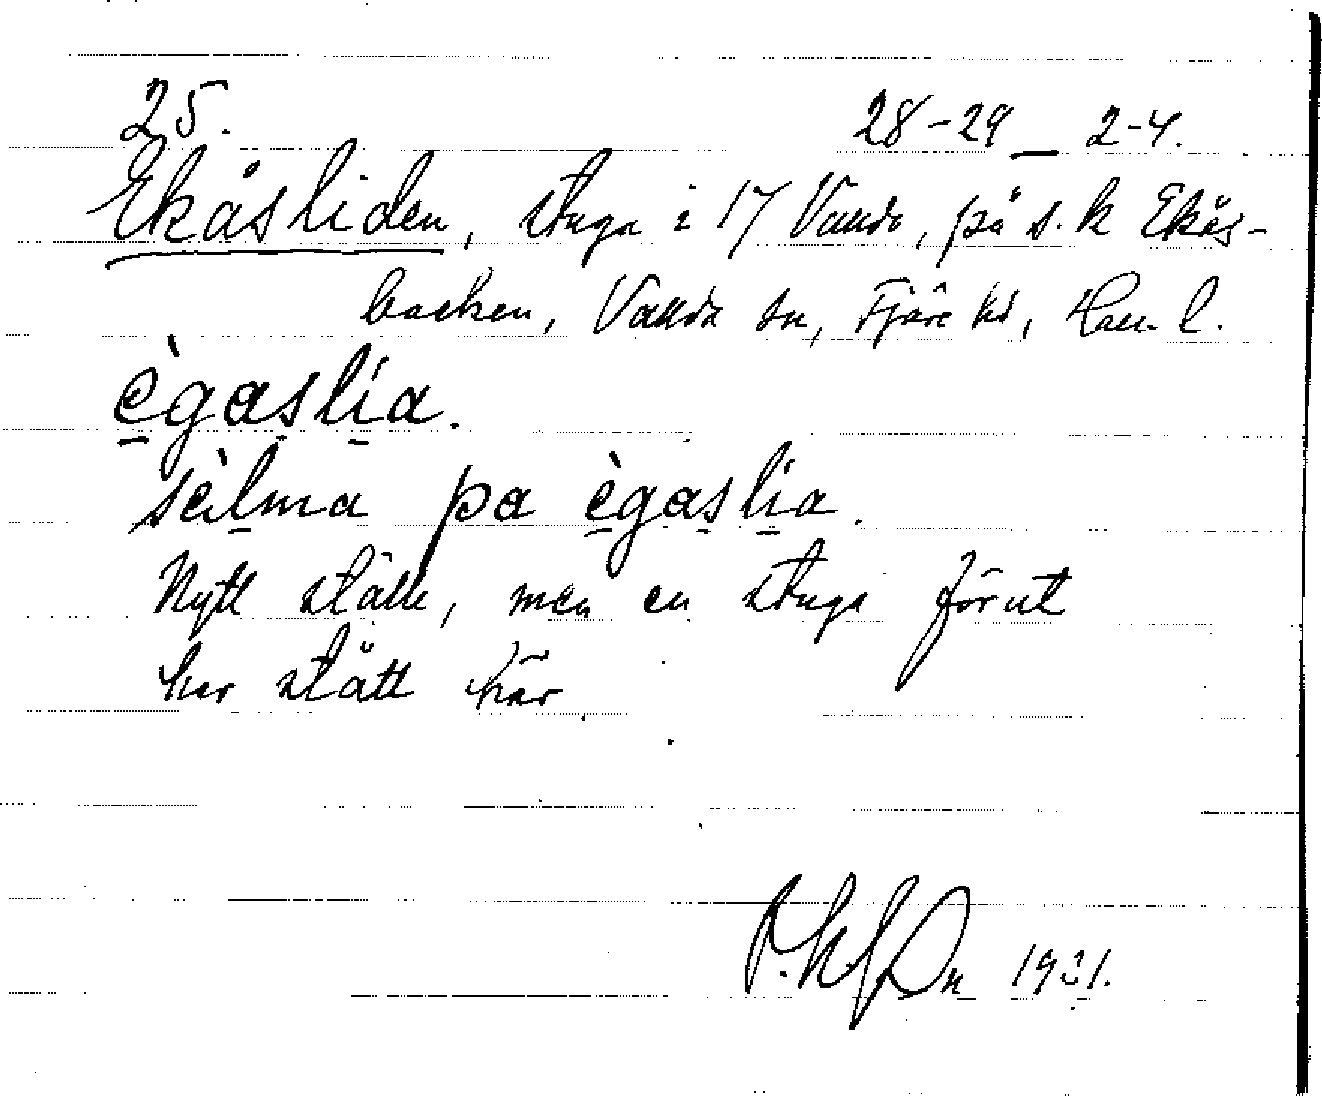 25. 28-29 — 2-4.
Ekåsliden, stuga i 17 Vanda, på s.k Ekås-
backen, Vanda sn, Fjäre hd, Hall. l.
ègaslia.
sèlma pa ègaslia.
Nytt ställe, men en stuga förut
har stått här.
1931.